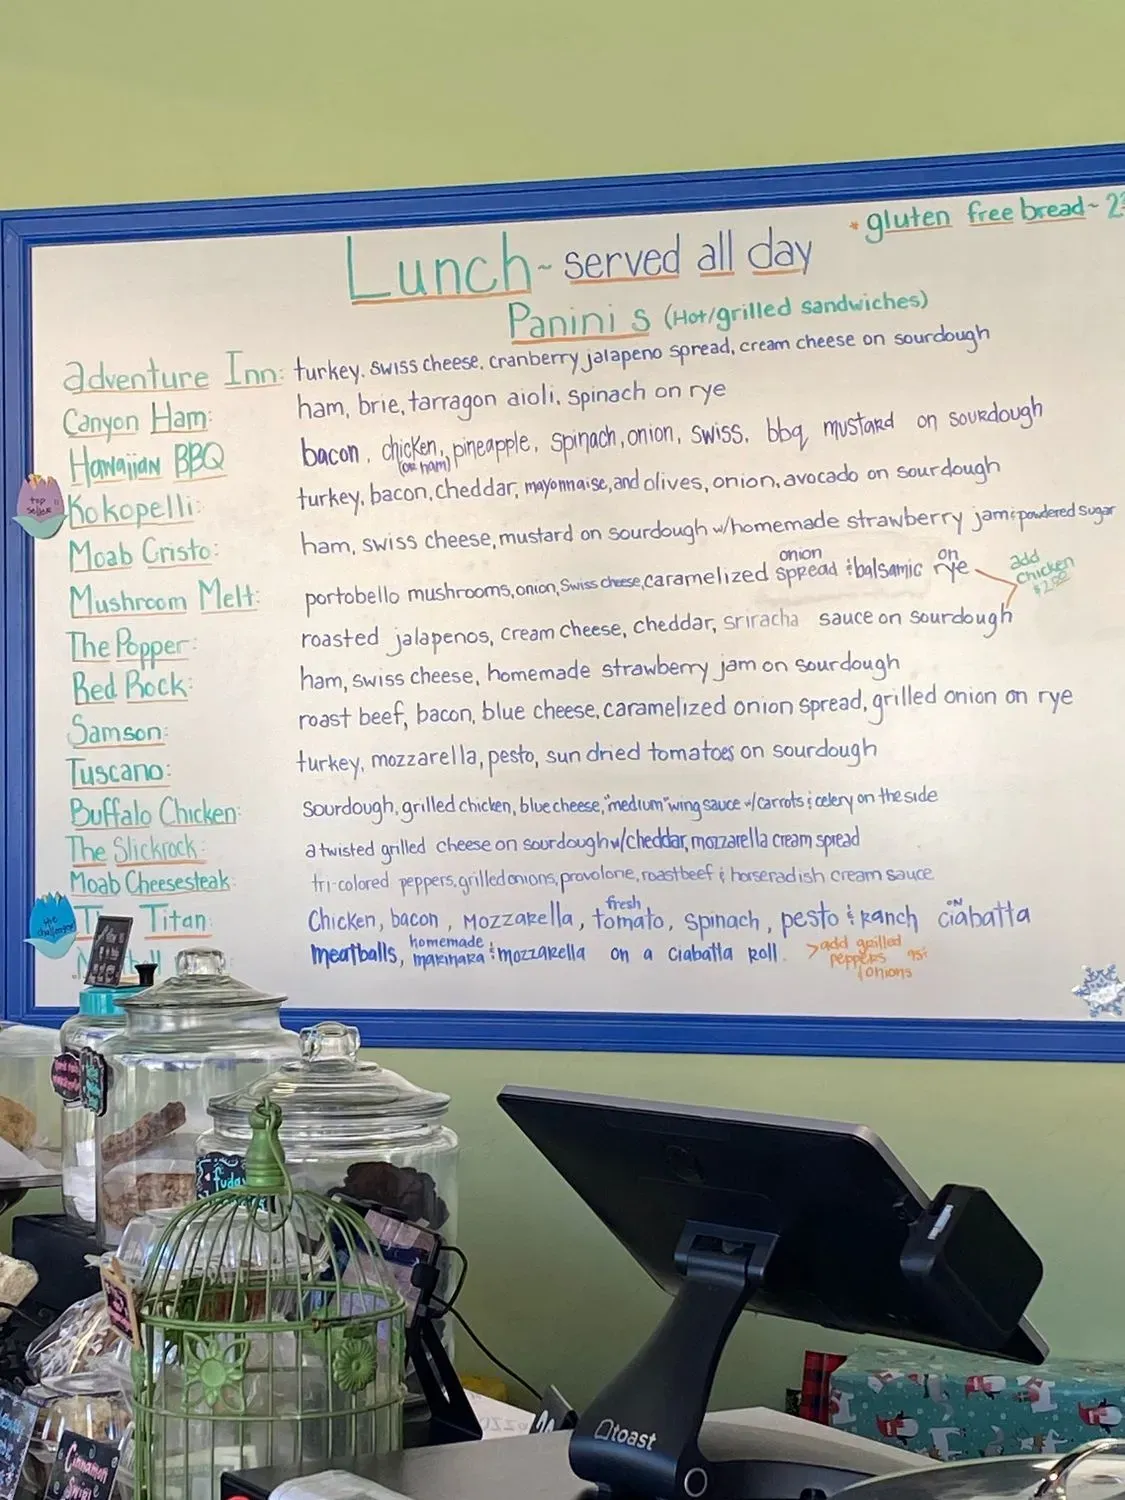 * gluten free bread ~
Lunch ~ served all day
Paninis (Hot/grilled sandwiches)
adventure Inn: turkey, swiss cheese, cranberry jalapeno spread, cream cheese on sourdough
Canyon Ham: ham, brie, tarragon aioli, spinach on rye
Hawaiian BBQ bacon, chicken, pineapple, spinach, onion, swiss, bbq mustard on sourdough
(or ham)
top seller
Kokopelli: turkey, bacon, cheddar, mayonnaise, and olives, onion, avocado on sourdough
Moab Cristo: ham, swiss cheese, mustard on sourdough w/homemade strawberry jam & powdered sugar
Mushroom Melt: portobello mushrooms, onion, Swiss cheese, caramelized onion spread & balsamic on rye
add chicken $2.00
The Popper: roasted jalapenos, cream cheese, cheddar, sriracha sauce on sourdough
Red Rock: ham, swiss cheese, homemade strawberry jam on sourdough
Samson: roast beef, bacon, blue cheese, caramelized onion spread, grilled onion on rye
Tuscano: turkey, mozzarella, pesto, sun dried tomatoes on sourdough
Buffalo Chicken: Sourdough, grilled chicken, blue cheese, "medium" wing sauce w/carrots & celery on the side
The Slickrock: a twisted grilled cheese on sourdough w/cheddar, mozzarella cream spread
Moab Cheesesteak: tri-colored peppers, grilled onions, provolone, roast beef & horseradish cream sauce
Titan: Chicken, bacon, mozzarella, fresh tomato, spinach, pesto & Ranch on ciabatta
meatballs, homemade marinara & mozzarella on a ciabatta roll.
> add grilled peppers & onions
fudge
toast
Cinnamon
Swirl